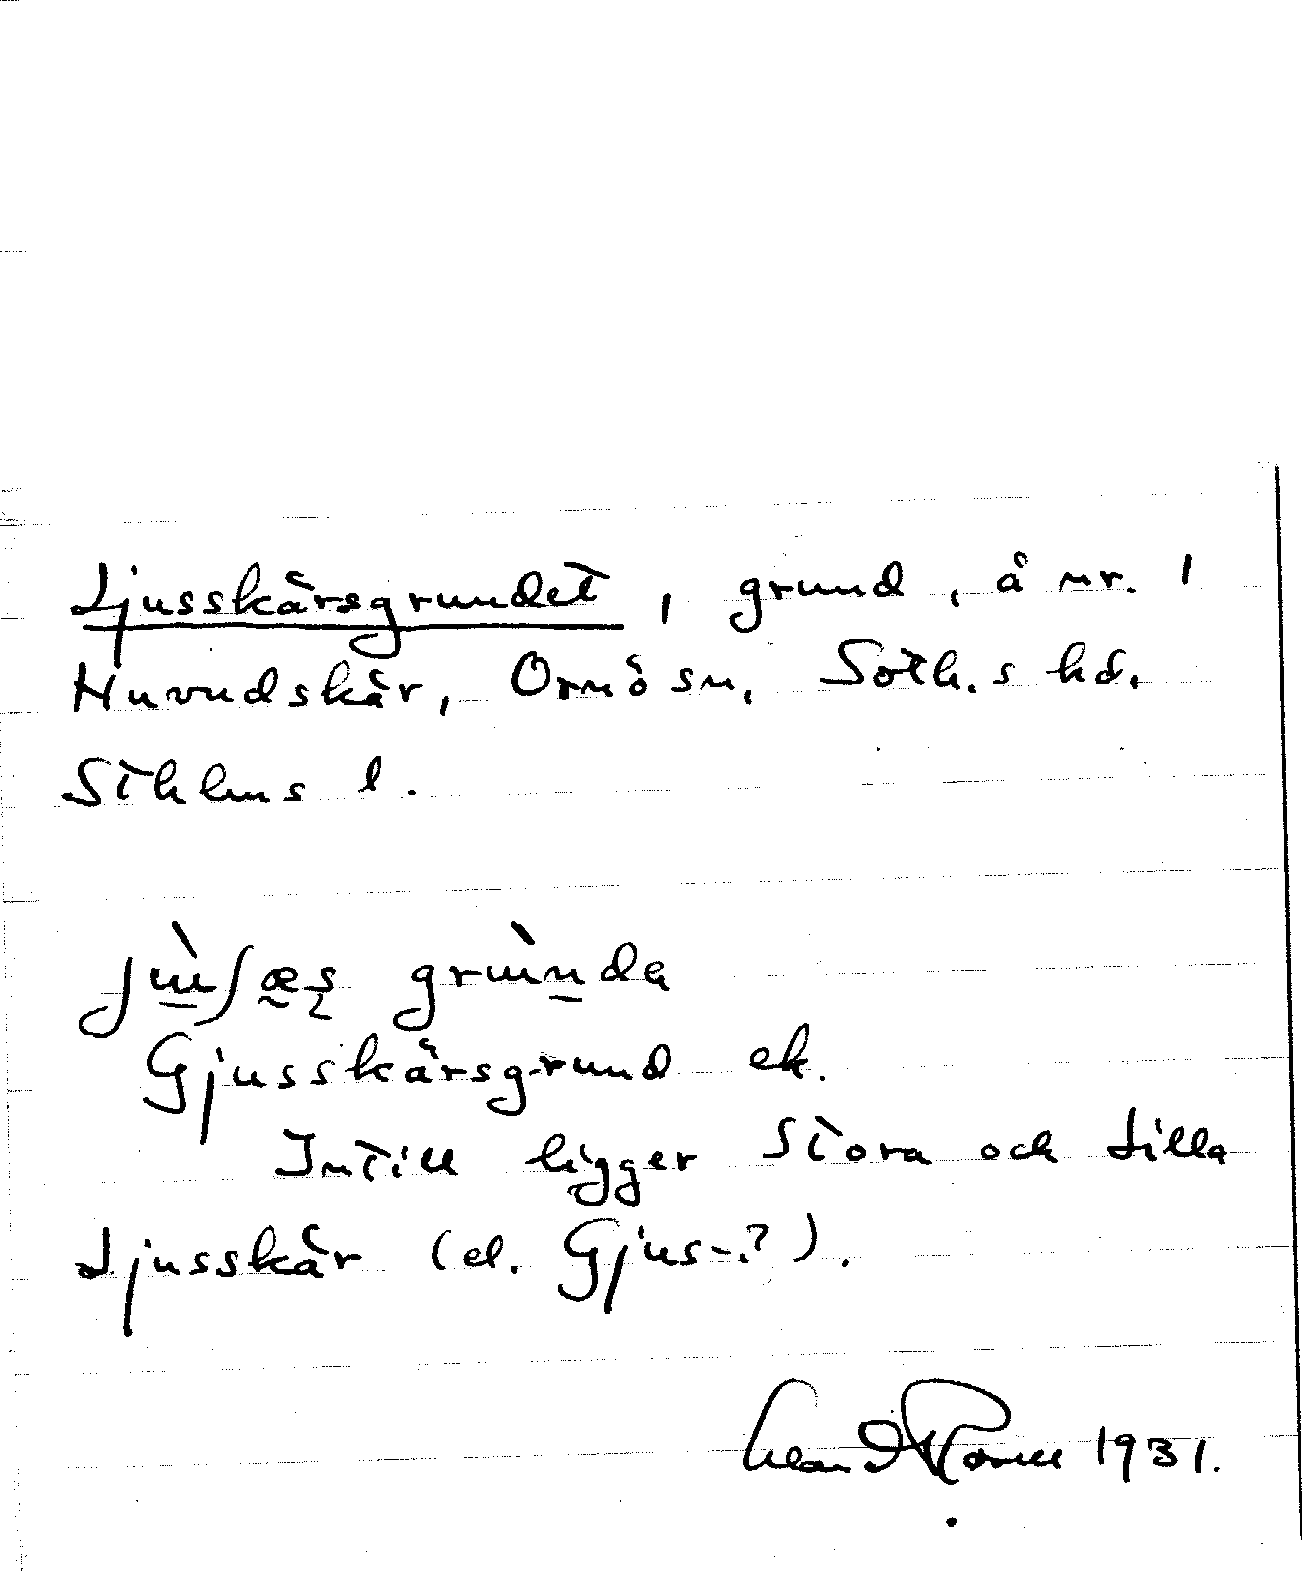 Ljusskärsgrundet, grund, å nr. 1
Huvudskär, Ornö sn, Soth.s hd.
Sthlms l.
grùnda
Gjusskärsgrund ek.
Intill ligger Stora och Lilla
Ljusskär (el. Gjus-?).
1931.